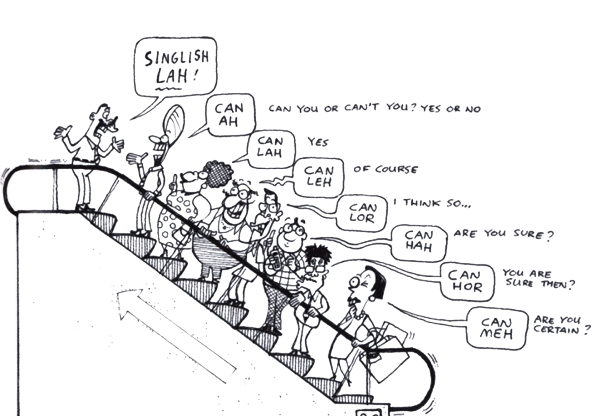 SINGLISH
LAH!
CAN
AH
CAN YOU OR CAN'T YOU? YES OR NO
CAN
LAH
YES
CAN
LEH
OF COURSE
CAN
LOR
I THINK SO...
CAN
HAH
ARE YOU SURE?
CAN
HOR
YOU ARE
SURE THEN?
CAN
MEH
ARE YOU
CERTAIN?